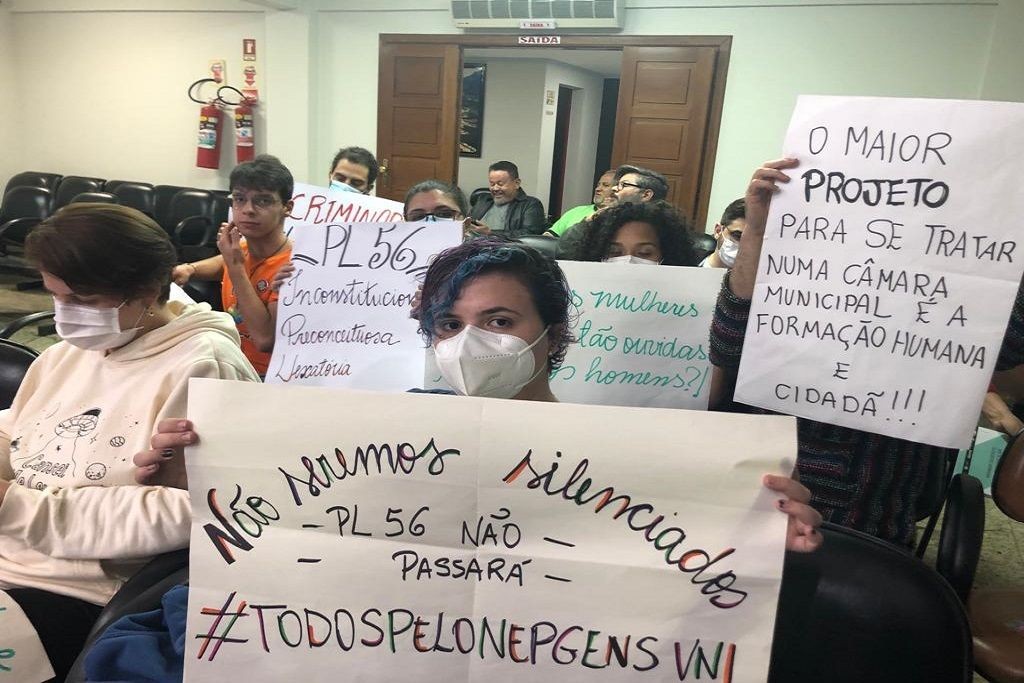 SAÍDA
CRIMINOS
PL 56
Inconstitucion
Preconceituosa
Vexatória
mulheres
tão ouvidas
homens?!
O MAIOR
PROJETO
PARA SE TRATAR
NUMA CÂMARA
MUNICIPAL É A
FORMAÇÃO HUMANA
E
CIDADÃ!!!
Não seremos silenciados
- PL 56 NÃO -
- PASSARÁ -
#TODOSPELONEPGENSVNI